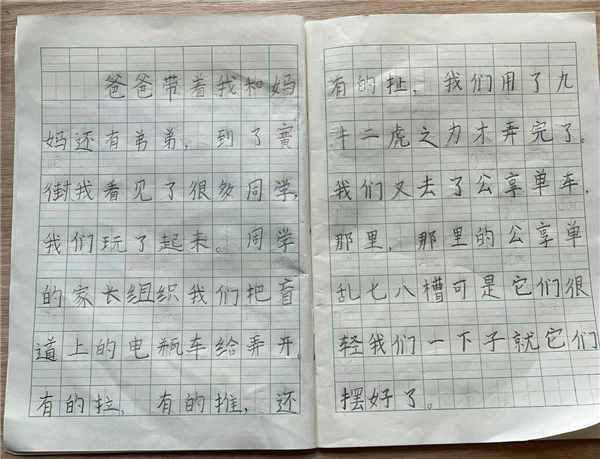 爸爸带着我和妈
妈还有弟弟，到了賓
街我看见了很多同学，
我们玩了起来。同学
的家长组织我们把盲
道上的电瓶车给弄开。
有的拉，有的推，还
有的扯，我们用了九
牛二虎之力才弄完了。
我们又去了公享单车，
那里，那里的公享单
乱七八槽可是它们很
轻我们一下子就它们
摆好了。